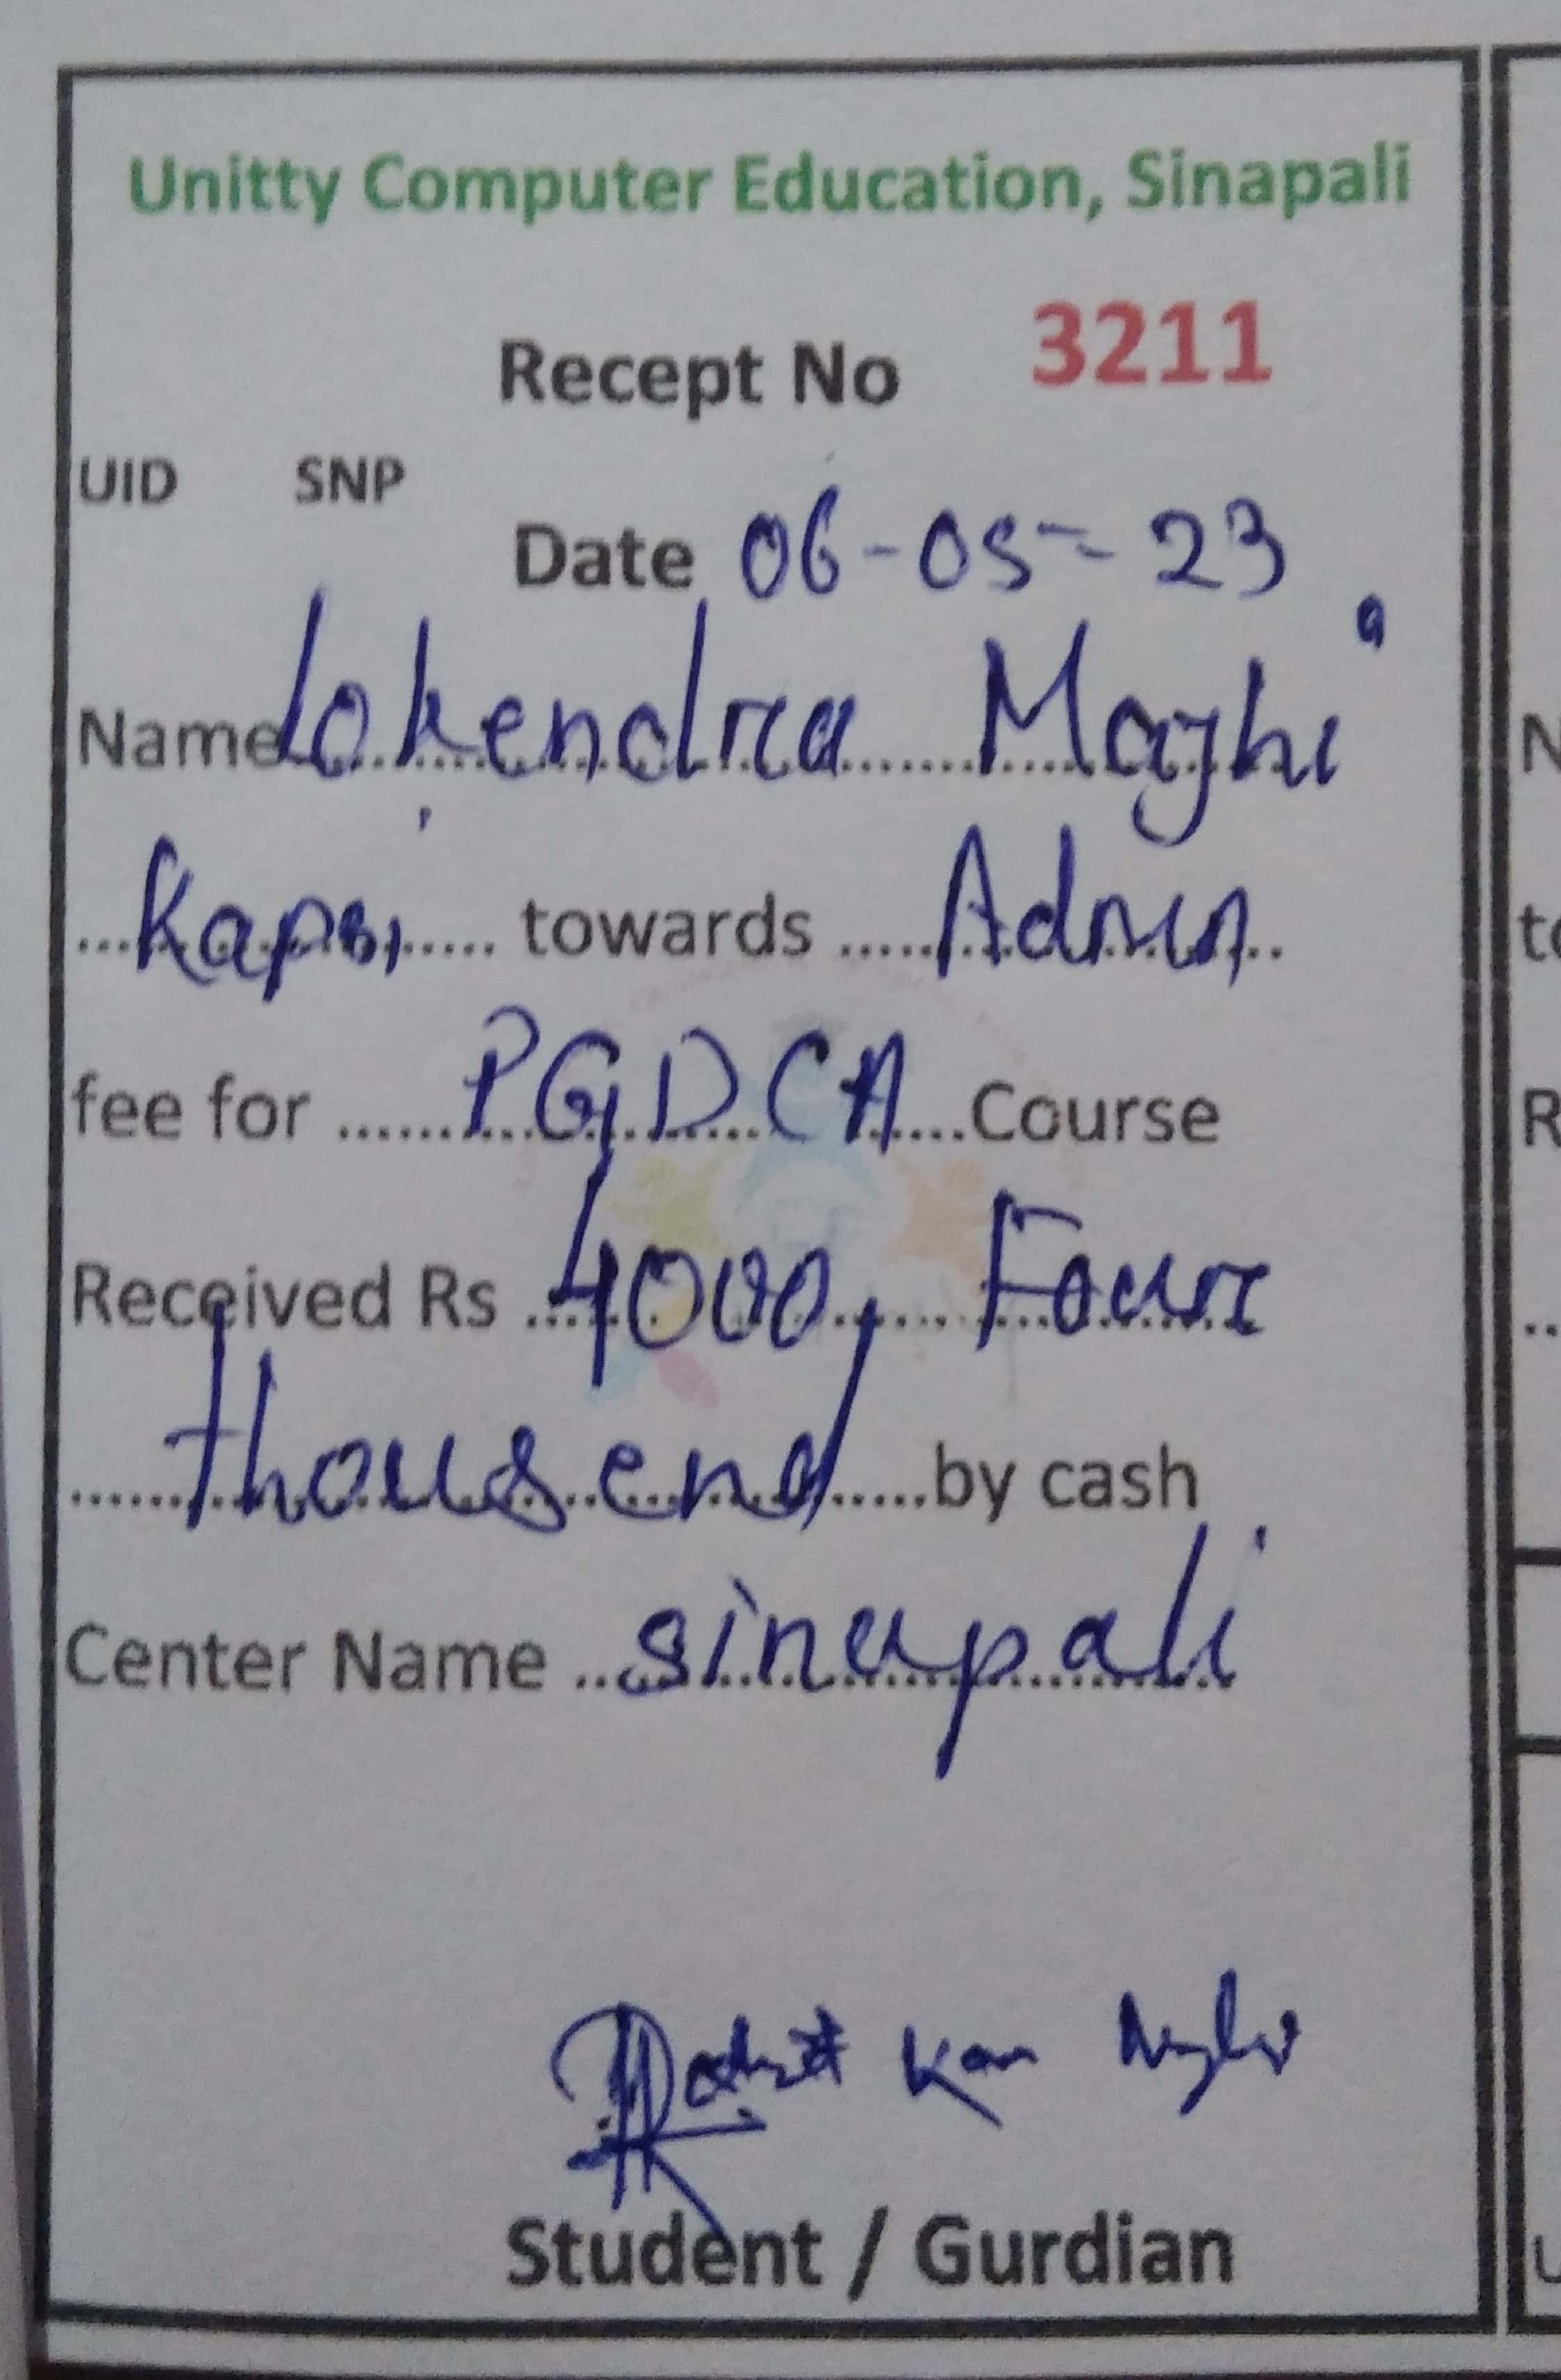 Unitty Computer Education, Sinapali
Recept No 3211
UID SNP
Date 06-05-23
Name Lokendra Majhi
Kapsi towards Admn
fee for PGDCA Course
Received Rs 4000, Four
thousend by cash
Center Name sinapali
Student / Gurdian